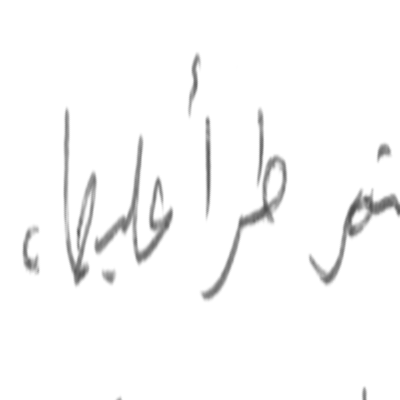 ثم طرأ عليها